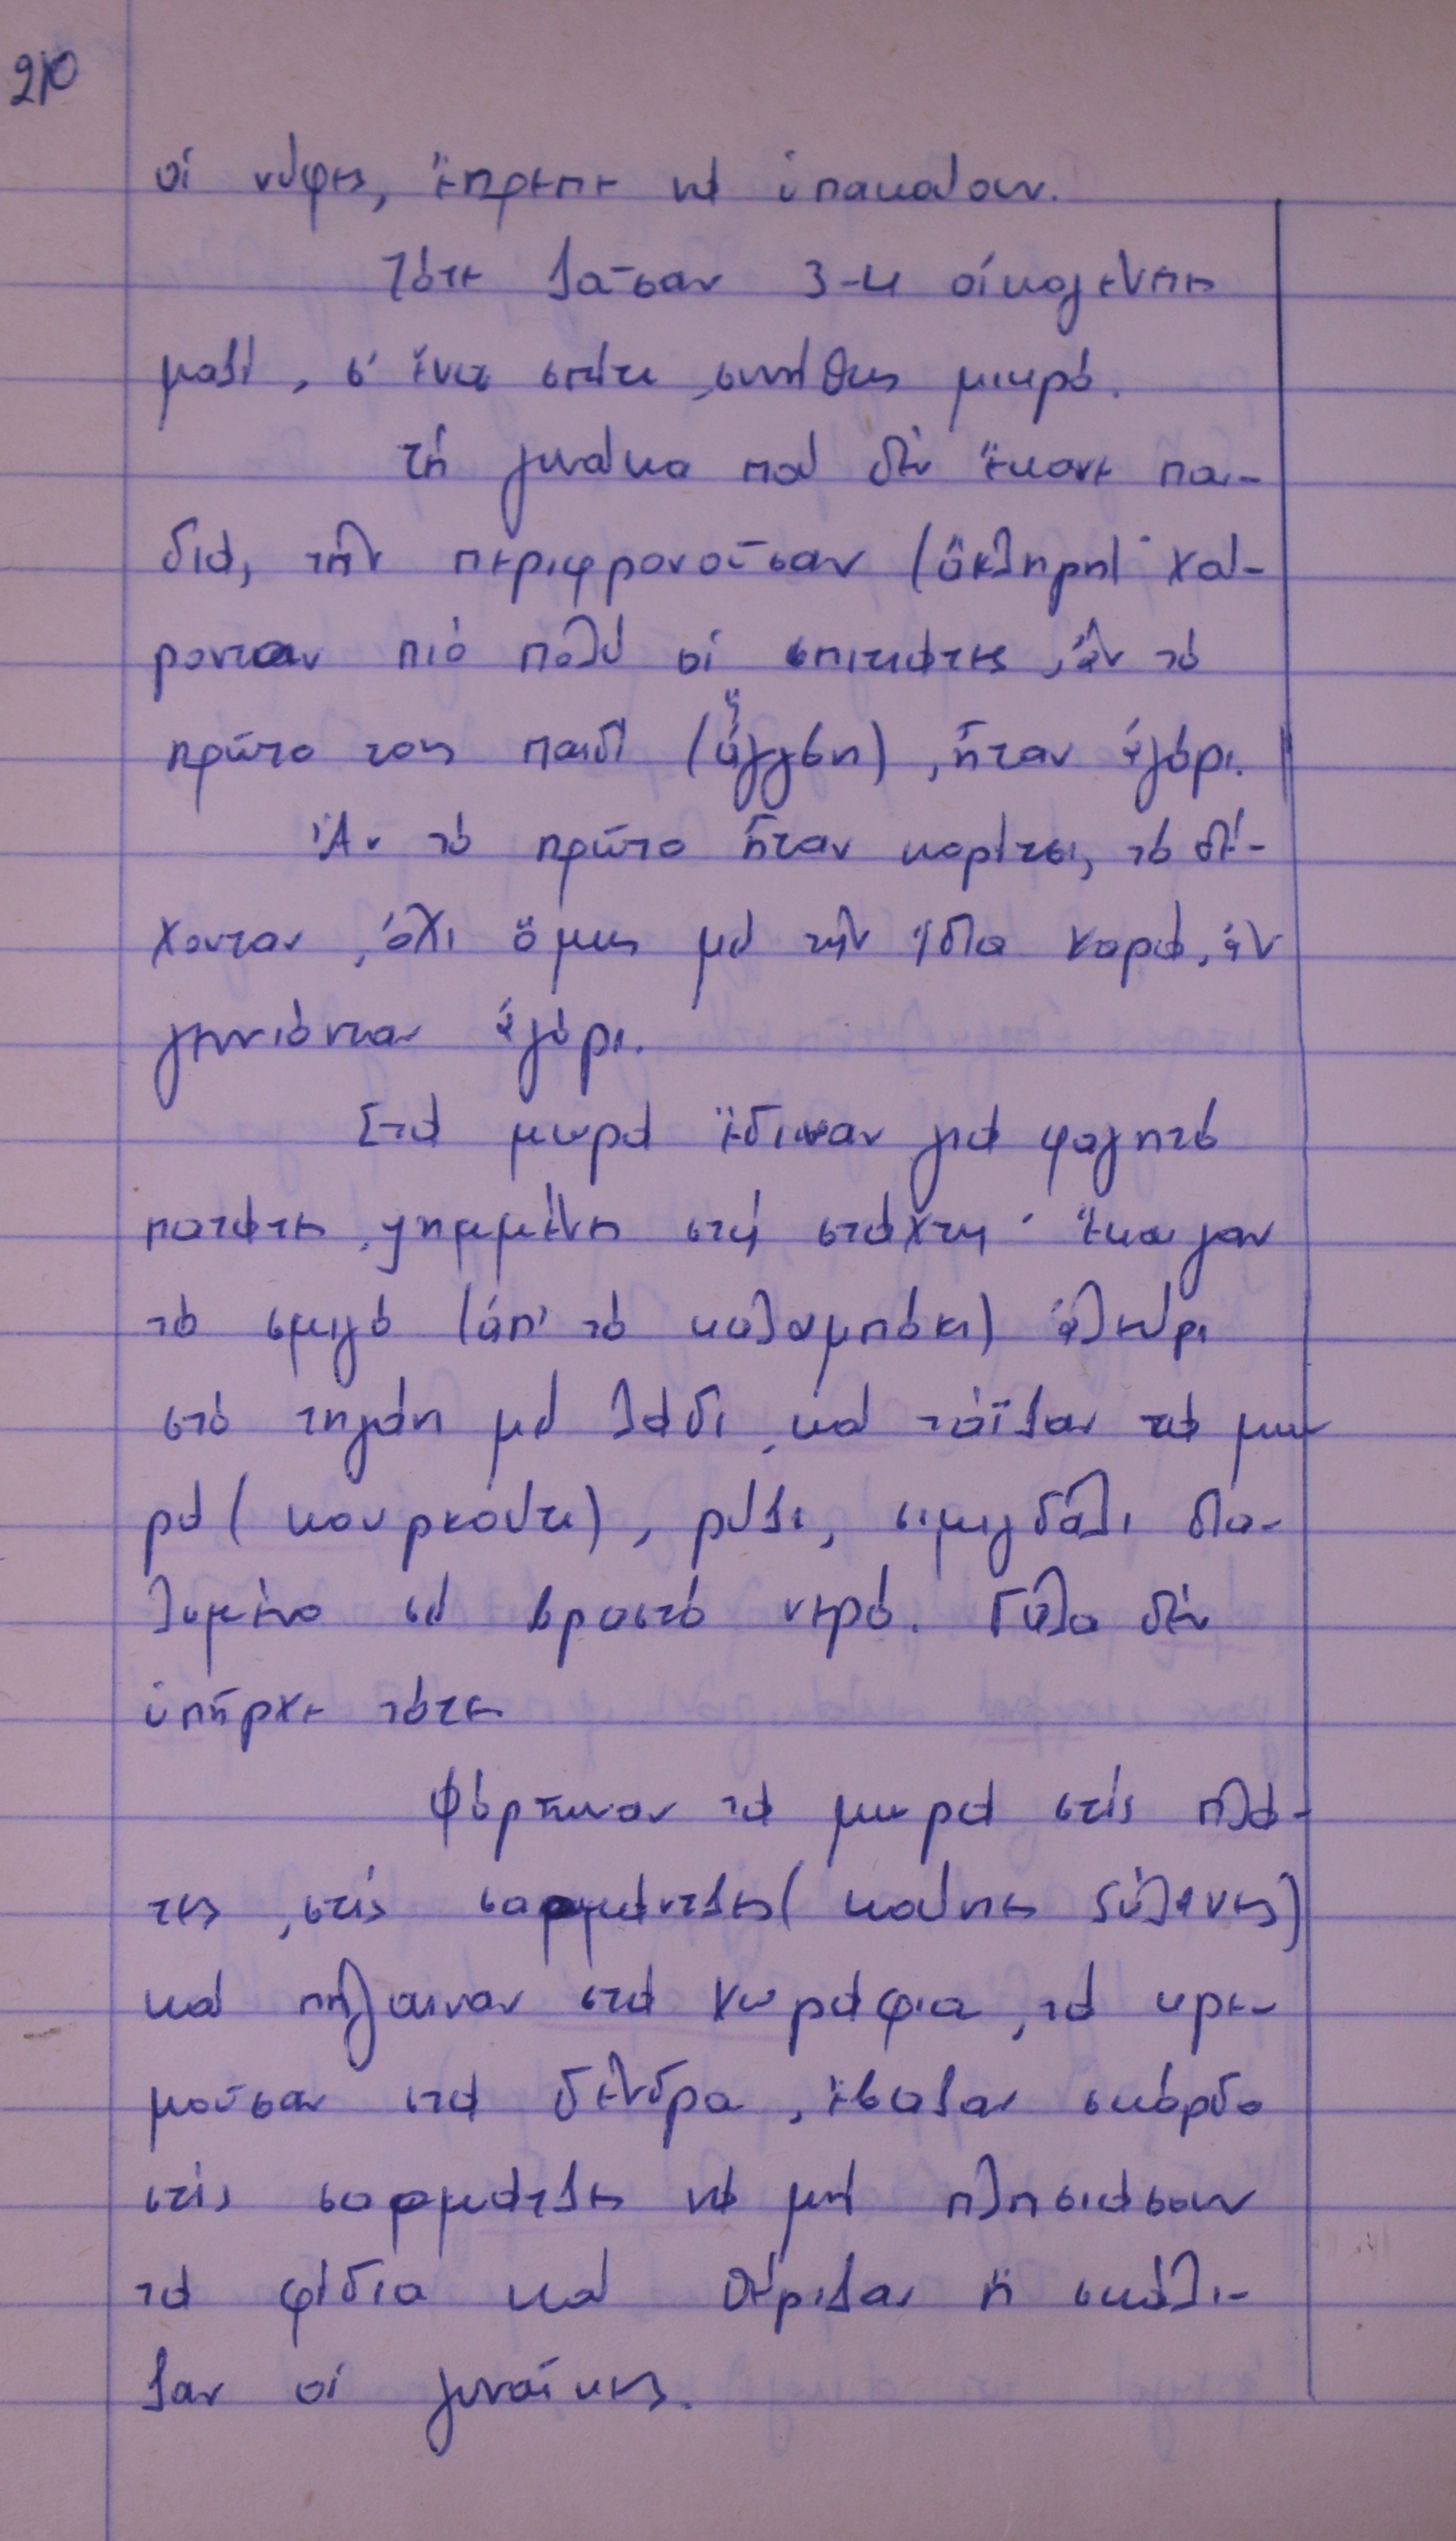 210
οἱ νύφες, ἔπρεπε νά ὑπακούουν.
Τότε ζοῦσαν 3-4 οἰκογένειες
μαζί, σ' ἕνα σπίτι, συνήθως μικρό.
Τή γυναίκα πού δέν ἔκανε παι-
διά, τήν περιφρονοῦσαν (ἄκληρη)· χαί-
ρονταν πιό πολύ οἱ σπιτιάτες, ἄν τό
πρῶτο τους παιδί, ἦταν ἀγόρι.
Ἄν τό πρῶτο ἦταν κορίτσι, τό δέ-
χονταν, ὄχι ὅμως μέ τήν ἴδια χαρά, ἄν
γεννιόνταν ἀγόρι.
Στά μωρά ἔδιναν γιά φαγητό
πατάτες, ψημμένες στή στάχτη· ἔκαιγαν
τό σμιγό (ἀπ' τό καλαμπόκι) ἀλεύρι
στό τηγάνι μέ λάδι, καί τάϊζαν τά μω
ρά (κουρκούτι), ρύζι, σιμιγδάλι δια-
λυμένο σέ βραστό νερό. Γάλα δέν
ὑπῆρχε τότε
Φόρτωναν τά μωρά στίς πλά-
τες, στίς σαρμάντζες (κούνιες ξύλινες)
καί πήγαιναν στά χωράφια, τά κρε-
μοῦσαν στά δένδρα, ἔβαζαν σκόρδο
στίς σαρμάτζες νά μή πλησιάσουν
τά φίδια καί θέριζαν ἤ σκάλι-
ζαν οἱ γυναῖκες.